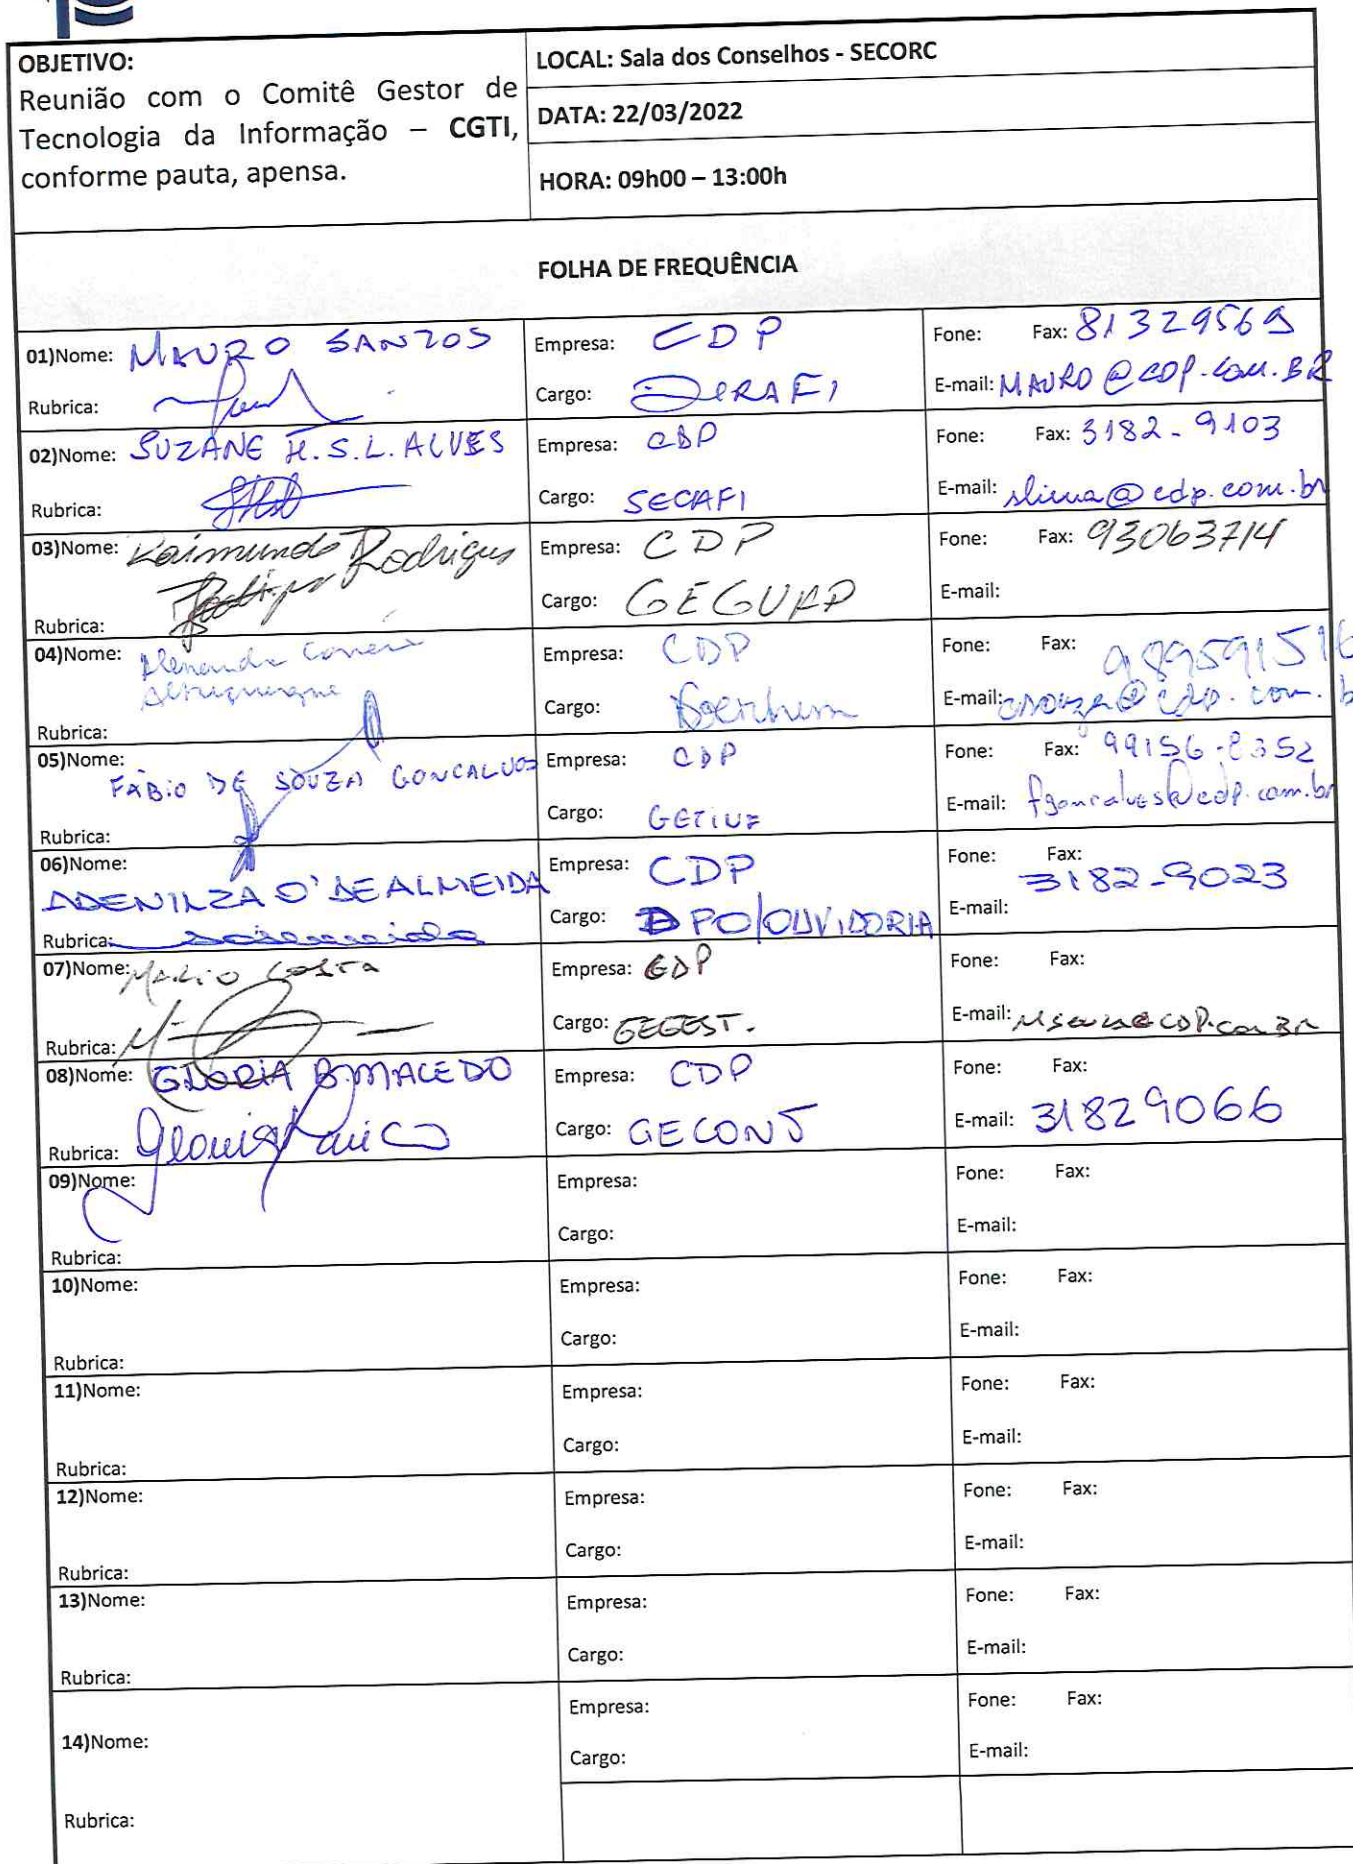 OBJETIVO:
Reunião com o Comitê Gestor de
Tecnologia da Informação – CGTI,
conforme pauta, apensa.
LOCAL: Sala dos Conselhos - SECORC
DATA: 22/03/2022
HORA: 09h00 – 13:00h
FOLHA DE FREQUÊNCIA
01)Nome: MAURO SANTOS
Rubrica:
Empresa: CDP
Cargo: DIRAFI
Fone: Fax: 81329569
E-mail: MAURO@CDP.COM.BR
02)Nome: SUZANE H.S.L.ALVES
Rubrica:
Empresa: CDP
Cargo: SECAFI
Fone: Fax: 3182-9103
E-mail: slima@cdp.com.br
03)Nome: Raimundo Rodrigues
Rubrica:
Empresa: CDP
Cargo: GEGUAP
Fone: Fax: 93063714
E-mail:
04)Nome: Correia
Albuquerque
Rubrica:
Empresa: CDP
Cargo:
Fone: Fax: 989591516
E-mail:
05)Nome:
FÁBIO DE SOUZA GONCALVES
Rubrica:
Empresa: CDP
Cargo:
Fone: Fax: 99156-8352
E-mail: fgoncalves@cdp.com.br
06)Nome:
ADENILZA O' DE ALMEIDA
Rubrica:
Empresa: CDP
Cargo: DPO/OUVIDORIA
Fone: Fax:
3182-9023
E-mail:
07)Nome: MARIO COSTA
Rubrica:
Empresa: CDP
Cargo: GEGEST.
Fone: Fax:
E-mail:
08)Nome: GLORIA B.MACEDO
Rubrica:
Empresa: CDP
Cargo: GECONJ
Fone: Fax:
E-mail: 31829066
09)Nome:
Rubrica:
Empresa:
Cargo:
Fone: Fax:
E-mail:
10)Nome:
Rubrica:
Empresa:
Cargo:
Fone: Fax:
E-mail:
11)Nome:
Rubrica:
Empresa:
Cargo:
Fone: Fax:
E-mail:
12)Nome:
Rubrica:
Empresa:
Cargo:
Fone: Fax:
E-mail:
13)Nome:
Rubrica:
Empresa:
Cargo:
Fone: Fax:
E-mail:
14)Nome:
Rubrica:
Empresa:
Cargo:
Fone: Fax:
E-mail: